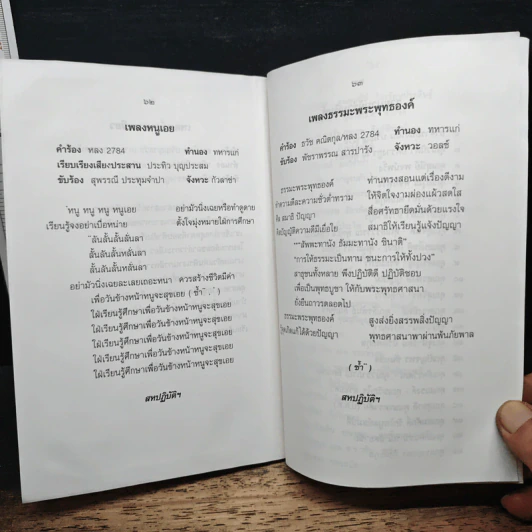 ๖๒
เพลงหนูเอย
คำร้อง หลง 2784 ทำนอง ทหารแก่
เรียบเรียงเสียงประสาน ประทิว บุญประสม
ขับร้อง สุพรรณี ประทุมจำปา จังหวะ กัวลาซ่า
หนู หนู หนู หนูเอย อย่ามัวนิ่งเฉยหรือทำดูดาย
เรียนรู้จงอย่าเบื่อหน่าย ตั้งใจมุ่งหมายใฝ่การศึกษา
ลันลั้นลันลั้นลันลา
ลันลั้นลันหลั่นลา
ลันลั้นลันหลั่นลา
อย่ามัวนิ่งเฉยละเลยเถอะหนา ควรสร้างชีวิตมีค่า
เพื่อวันข้างหน้าหนูจะสุขเอย ( ซ้ำ )
ใฝ่เรียนรู้ศึกษาเพื่อวันข้างหน้าหนูจะสุขเอย
ใฝ่เรียนรู้ศึกษาเพื่อวันข้างหน้าหนูจะสุขเอย
ใฝ่เรียนรู้ศึกษาเพื่อวันข้างหน้าหนูจะสุขเอย
ใฝ่เรียนรู้ศึกษาเพื่อวันข้างหน้าหนูจะสุขเอย
สหปฏิบัติฯ
๖๓
เพลงธรรมะพระพุทธองค์
คำร้อง ธวัช คณิตกูล/หลง 2784 ทำนอง ทหารแก่
ขับร้อง พัชราพรรณ สารปารัง จังหวะ วอลซ์
ธรรมะพระพุทธองค์ ท่านทรงสอนแต่เรื่องดีงาม
ทำความดีละความชั่วต่ำทราม ให้จิตใจงามผ่องแผ้วสดใส
สมาธิ ปัญญา สื่อศรัทธายึดมั่นด้วยแรงใจ
ปัญญัติความดีมีเยื่อใย สมาธิให้เรียนรู้แจ้งปัญญา
"สัพพะทานัง ธัมมะทานัง ชินาติ"
"การให้ธรรมะเป็นทาน ชนะการให้ทั้งปวง"
สาธุชนทั้งหลาย พึงปฏิบัติดี ปฏิบัติชอบ
เพื่อเป็นพุทธบูชา ให้กับพระพุทธศาสนา
ยั่งยืนถาวรตลอดไป
ธรรมะพระพุทธองค์ สูงส่งยิ่งสรรพสิ่งปัญญา
แก้ได้ด้วยปัญญา พุทธศาสนาพาผ่านพ้นภัยพาล
( ซ้ำ )
สหปฏิบัติฯ